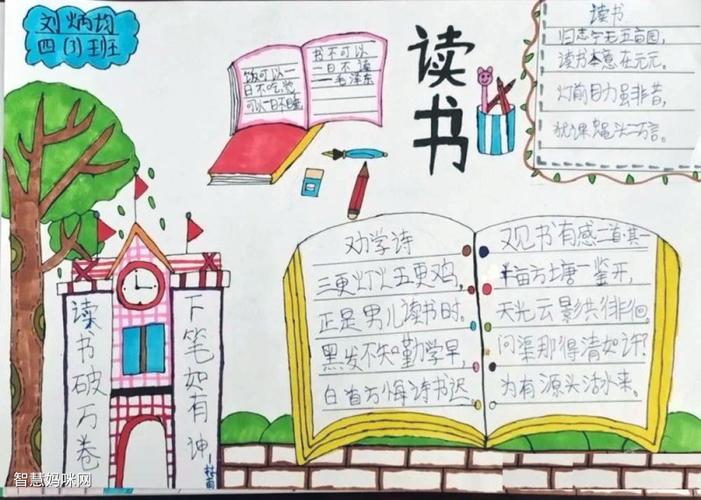 刘炳均
四(3)班
饭可以一
日不吃觉
可以一日不睡
书不可以
一日不读
—毛泽东
读书
读书
归志宁无五亩园,
读书本意在元元。
灯前目力虽非昔,
犹课蝇头二万言。
读书破万卷
下笔如有神
—杜甫
劝学诗
三更灯火五更鸡,
正是男儿读书时。
黑发不知勤学早,
白首方悔诗书迟。
观书有感一首其
半亩方塘一鉴开,
天光云影共徘徊。
问渠那得清如许?
为有源头活水来。
智慧妈咪网